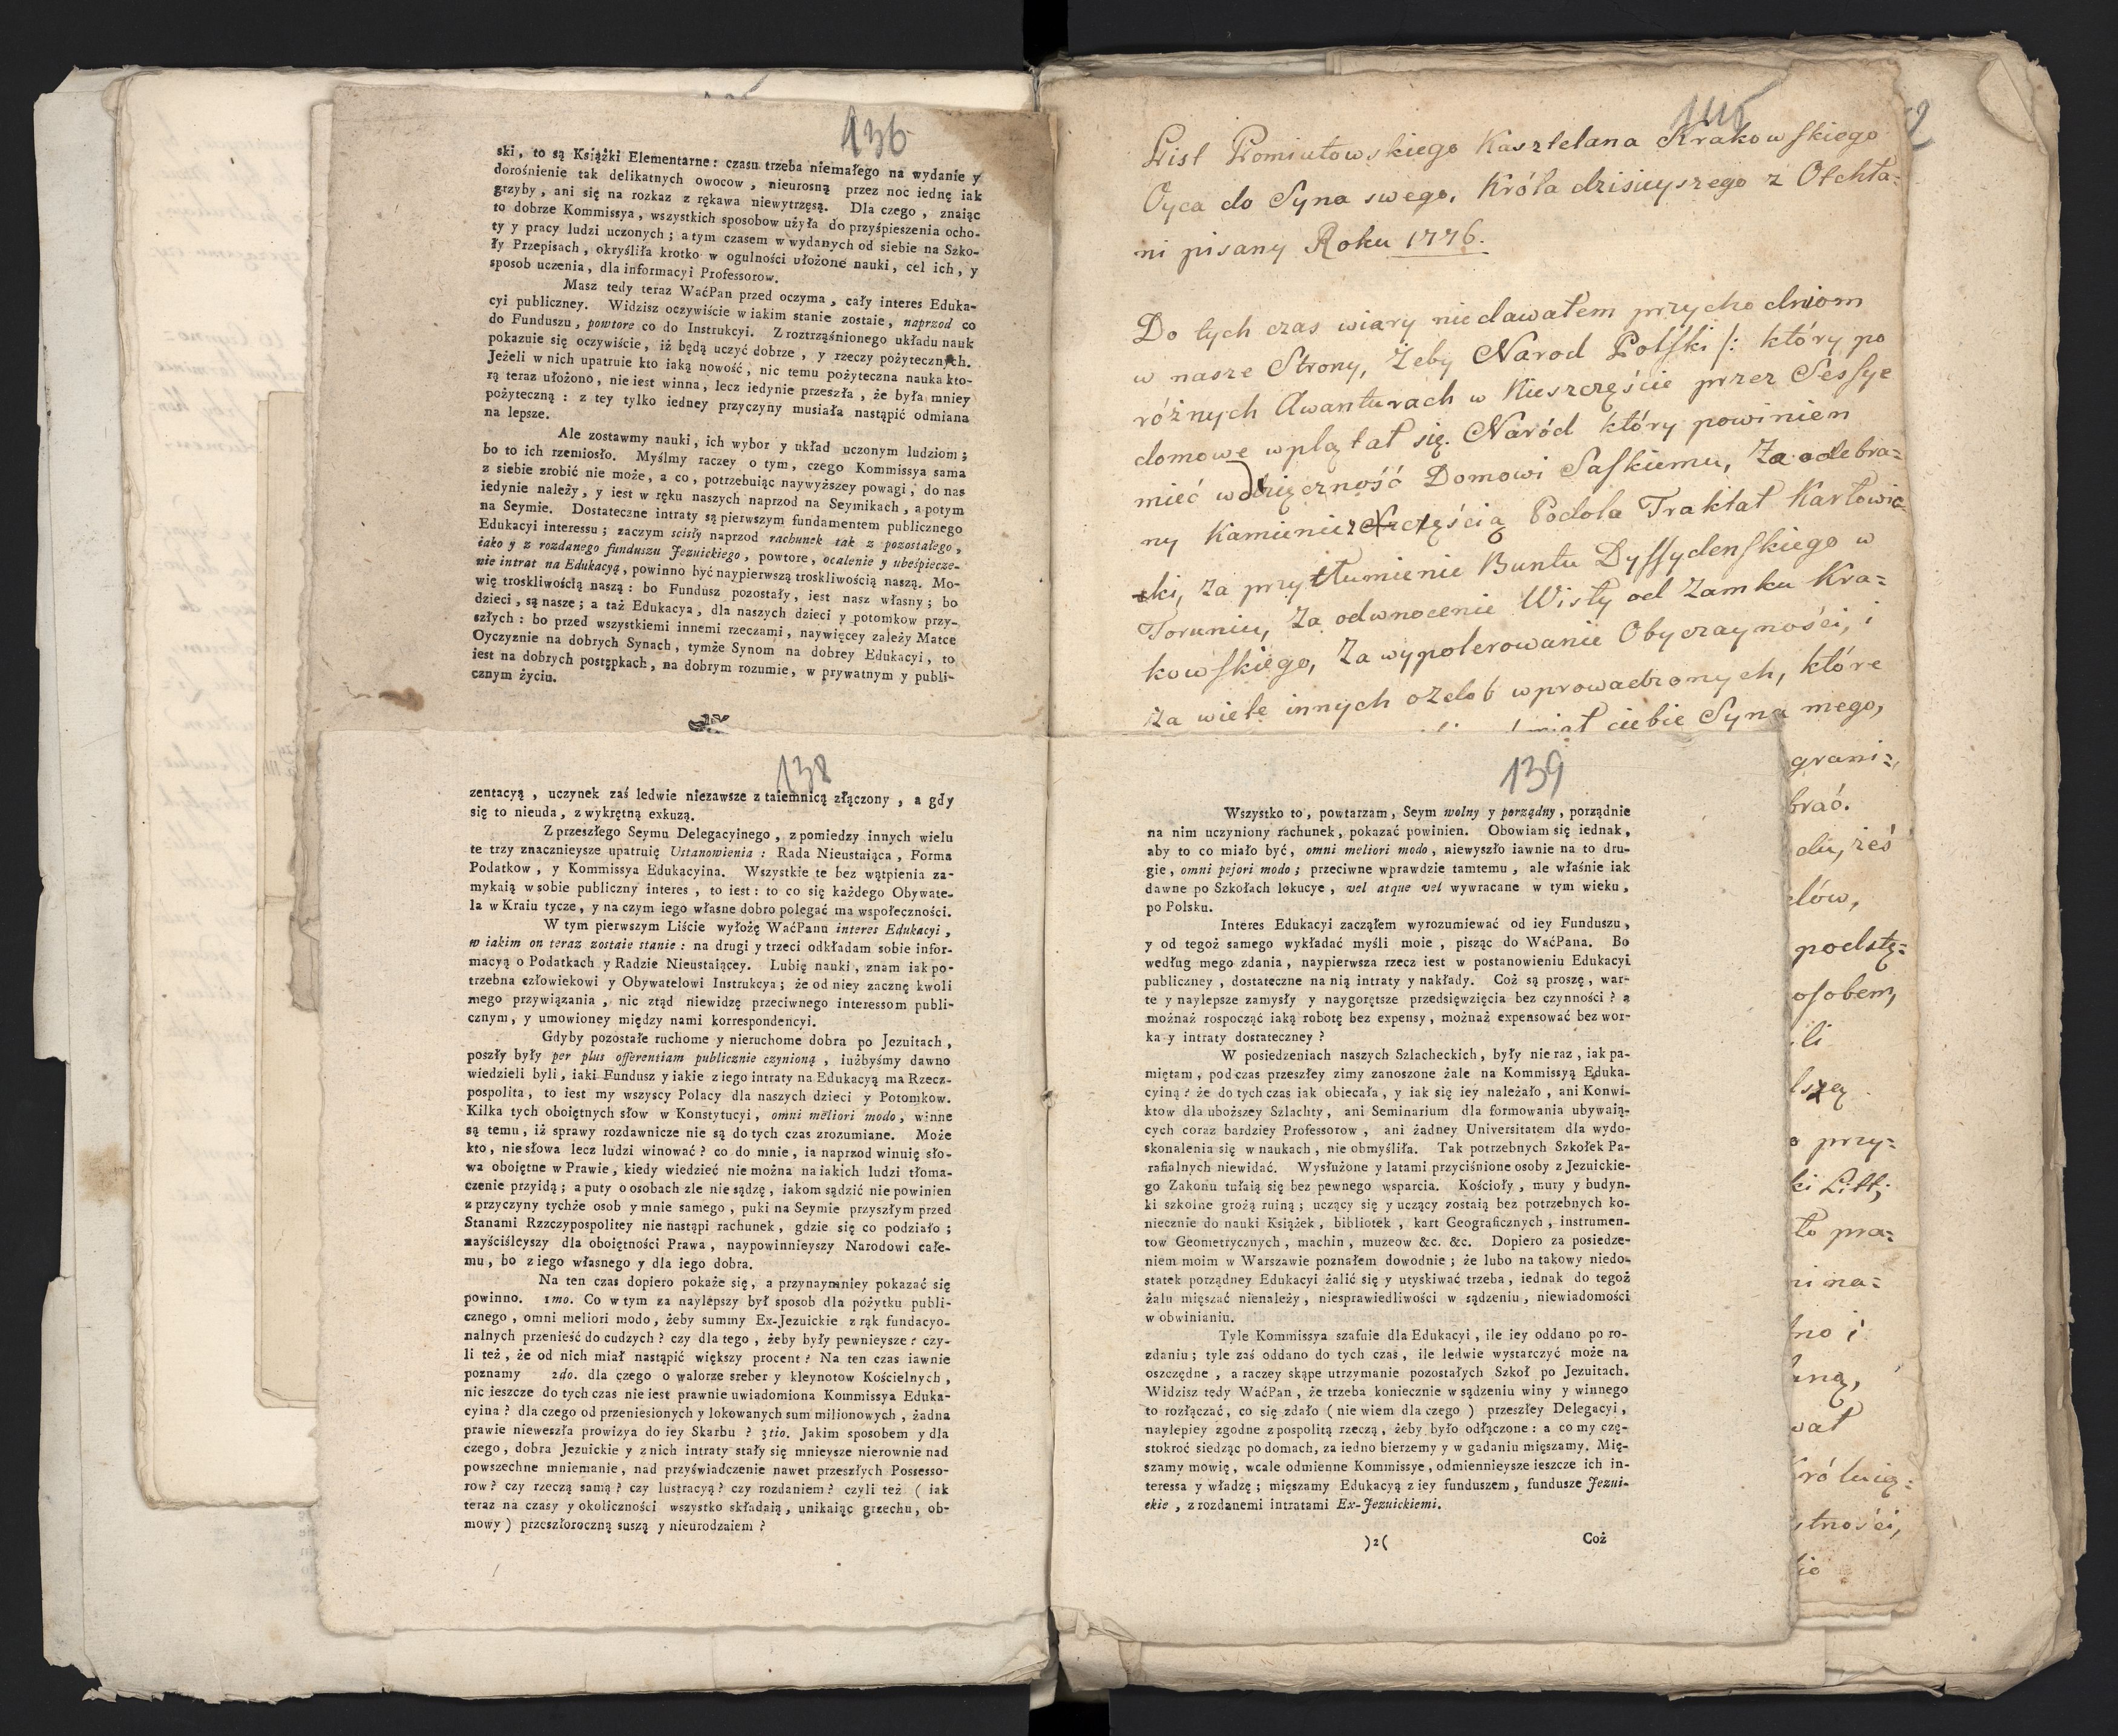 136
ski, to są Książki Elementarne: czasu trzeba niemałego na wydanie y
dorośnienie tak delikatnych owocow, nieurosną przez noc iednę iak
grzyby, ani się na rozkaz z rękawa niewytrzęsą. Dla czego, znaiąc
to dobrze Kommissya, wszystkich sposobow użyła do przyśpieszenia ocho-
ty y pracy ludzi uczonych; a tym czasem w wydanych od siebie na Szko-
ły Przepisach, okryśliła krotko w ogulności ułożone nauki, cel ich, y
sposob uczenia, dla informacyi Professorow.
Masz tedy teraz WaćPan przed oczyma, cały interes Eduka-
cyi publiczney. Widzisz oczywiście w iakim stanie zostaie, naprzod co
do Funduszu, powtore co do Instrukcyi. Z roztrząśnionego układu nauk
pokazuie się oczywiście, iż będą uczyć dobrze, y rzeczy pożytecznych.
Jeżeli w nich upatruie kto iaką nowość, nic temu pożyteczna nauka kto-
rą teraz ułożono, nie iest winna, lecz iedynie przeszła, że była mniey
pożyteczną: z tey tylko iedney przyczyny musiała nastąpić odmiana
na lepsze.
Ale zostawmy nauki, ich wybor y układ uczonym ludziom;
bo to ich rzemiosło. Myślmy raczey o tym, czego Kommissya sama
z siebie zrobić nie może, a co, potrzebuiąc naywyższey powagi, do nas
iedynie należy, y iest w ręku naszych naprzod na Seymikach, a potym
na Seymie. Dostateczne intraty są pierwszym fundamentem publicznego
Edukacyi interessu; zaczym scisły naprzod rachunek tak z pozostałego,
iako y z rozdanego funduszu Jezuickiego, powtore, ocalenie y ubeśpiecze-
nie intrat na Edukacyą, powinno być naypierwszą troskliwością naszą. Mo-
wię troskliwością naszą: bo Fundusz pozostały, iest nasz własny; bo
dzieci, są nasze; a taż Edukacya, dla naszych dzieci y potomkow przy-
szłych: bo przed wszystkiemi innemi rzeczami, naywięcey zależy Matce
Oyczyznie na dobrych Synach, tymże Synom na dobrey Edukacyi, to
iest na dobrych postępkach, na dobrym rozumie, w prywatnym y publi-
cznym życiu.
List Poniatowskiego Kasztelana Krakowskiego
Oyca do Syna swego, Króla dzisieyszego z Otchła=
ni pisany Roku 1776.
Do tych czas wiary nie dawałem przychodniom
w nasze Strony, żeby Narod Polski /: który po
różnych Awanturach w Nieszczęście przez Sessye
domowe wplątał się. Naród który powinien
mieć wdzięczność Domowi Saskiemu, Za odebra=
ny Kamieniec z częścią Podola Traktat Karłowic=
ki, za przytłumienie Buntu Dyssydenskiego w
Toruniu, Za odwrocenie Wisły od Zamku Kra=
kowskiego, Za wypolerowanie Obyczayności, i
za wiele innych ozdob wprowadzonych, które
ciebie Syna mego,
grani=
brać.
du, żeś
lów,
podstę=
osobem,
ili
lszey
przy=
ki Litt:
to pra=
ni na=
tno i
wał
tności,
138
zentacyą, uczynek zaś ledwie niezawsze z taiemnicą złączony, a gdy
się to nieuda, z wykrętną exkuzą.
Z przeszłego Seymu Delegacyinego, z pomiedzy innych wielu
te trzy znacznieysze upatruię Ustanowienia: Rada Nieustaiąca, Forma
Podatkow, y Kommissya Edukacyina. Wszystkie te bez wątpienia za-
mykaią w sobie publiczny interes, to iest: to co się każdego Obywate-
la w Kraiu tycze, y na czym iego własne dobro polegać ma wspołeczności.
W tym pierwszym Liście wyłożę WaćPanu interes Edukacyi,
w iakim on teraz zostaie stanie: na drugi y trzeci odkładam sobie infor-
macyą o Podatkach y Radzie Nieustaiącey. Lubię nauki, znam iak po-
trzebna człowiekowi y Obywatelowi Instrukcya; że od niey zacznę kwoli
mego przywiązania, nic ztąd niewidzę przeciwnego interessom publi-
cznym, y umowioney między nami korrespondencyi.
Gdyby pozostałe ruchome y nieruchome dobra po Jezuitach,
poszły były per plus offerentiam publicznie czynioną, iużbyśmy dawno
wiedzieli byli, iaki Fundusz y iakie z iego intraty na Edukacyą ma Rzecz-
pospolita, to iest my wszyscy Polacy dla naszych dzieci y Potomkow.
Kilka tych oboiętnych słow w Konstytucyi, omni meliori modo, winne
są temu, iż sprawy rozdawnicze nie są do tych czas zrozumiane. Może
kto, nie słowa lecz ludzi winować? co do mnie, ia naprzod winuię sło-
wa oboiętne w Prawie, kiedy wiedzieć nie można na iakich ludzi tłoma-
czenie przyidą; a puty o osobach zle nie sądzę, iakom sądzić nie powinien
z przyczyny tychże osob y mnie samego, puki na Seymie przyszłym przed
Stanami Rzzczypospolitey nie nastąpi rachunek, gdzie się co podziało;
nayściśleyszy dla oboiętności Prawa, naypowinnieyszy Narodowi całe-
mu, bo z iego własnego y dla iego dobra.
Na ten czas dopiero pokaże się, a przynaymniey pokazać się
powinno. 1mo. Co w tym za naylepszy był sposob dla pożytku publi-
cznego, omni meliori modo, żeby summy Ex-Jezuickie z rąk fundacyo-
nalnych przenieść do cudzych? czy dla tego, żeby były pewnieysze? czy-
li też, że od nich miał nastąpić większy procent? Na ten czas iawnie
poznamy 2do. dla czego o walorze sreber y kleynotow Kościelnych,
nic ieszcze do tych czas nie iest prawnie uwiadomiona Kommissya Eduka-
cyina? dla czego od przeniesionych y lokowanych sum milionowych, żadna
prawie nieweszła prowizya do iey Skarbu? 3tio. Jakim sposobem y dla
czego, dobra Jezuickie y z nich intraty stały się mnieysze nierownie nad
powszechne mniemanie, nad przyświadczenie nawet przeszłych Possesso-
row? czy rzeczą samą? czy lustracyą? czy rozdaniem? czyli też (iak
teraz na czasy y okoliczności wszystko składaią, unikaiąc grzechu, ob-
mowy) przeszłoroczną suszą y nieurodzaiem?
139
Wszystko to, powtarzam, Seym wolny y porządny, porządnie
na nim uczyniony rachunek, pokazać powinien. Obowiam się iednak,
aby to co miało być, omni meliori modo, niewyszło iawnie na to dru-
gie, omni pejori modo; przeciwne wprawdzie tamtemu, ale właśnie iak
dawne po Szkołach lokucye, vel atque vel wywracane w tym wieku,
po Polsku.
Interes Edukacyi zacząłem wyrozumiewać od iey Funduszu,
y od tegoż samego wykładać myśli moie, pisząc do WaćPana. Bo
według mego zdania, naypierwsza rzecz iest w postanowieniu Edukacyi
publiczney, dostateczne na nią intraty y nakłady. Coż są proszę, war-
te y naylepsze zamysły y naygorętsze przedsięwzięcia bez czynności? a
możnaż rospocząć iaką robotę bez expensy, możnaż expensować bez wor-
ka y intraty dostateczney?
W posiedzeniach naszych Szlacheckich, były nie raz, iak pa-
miętam, podczas przeszłey zimy zanoszone żale na Kommissyą Eduka-
cyiną: że do tych czas iak obiecała, y iak się iey należało, ani Konwi-
ktow dla uboższey Szlachty, ani Seminarium dla formowania ubywaią-
cych coraz bardziey Professorow, ani żadney Universitatem dla wydo-
skonalenia się w naukach, nie obmyśliła. Tak potrzebnych Szkołek Pa-
rafialnych niewidać. Wysłużone y latami przyciśnione osoby z Jezuickie-
go Zakonu tułaią się bez pewnego wsparcia. Kościoły, mury y budyn-
ki szkolne grożą ruiną; uczący się y uczący zostaią bez potrzebnych ko-
niecznie do nauki Książek, bibliotek, kart Geograficznych, instrumen-
tow Geometrycznych, machin, muzeow &c. &c. Dopiero za posiedze-
niem moim w Warszawie poznałem dowodnie; że lubo na takowy niedo-
statek porządney Edukacyi żalić się y utyskiwać trzeba, iednak do tegoż
żalu mięszać nienależy, niesprawiedliwości w sądzeniu, niewiadomości
w obwinianiu.
Tyle Kommissya szafuie dla Edukacyi, ile iey oddano po ro-
zdaniu; tyle zaś oddano do tych czas, ile ledwie wystarczyć może na
oszczędne, a raczey skąpe utrzymanie pozostałych Szkoł po Jezuitach.
Widzisz tędy WaćPan, że trzeba koniecznie w sądzeniu winy y winnego
to rozłączać, co się zdało (nie wiem dla czego) przeszłey Delegacyi,
naylepiey zgodne z pospolitą rzeczą, żeby było odłączone: a co my czę-
stokroć siedząc po domach, za iedno bierzemy y w gadaniu mięszamy. Mię-
szamy mowię, wcale odmienne Kommissye, odmiennieysze ieszcze ich in-
teressa y władzę; mięszamy Edukacyą z iey funduszem, fundusze Jezui-
ckie, z rozdanemi intratami Ex-Jezuickiemi.
)2( Coż